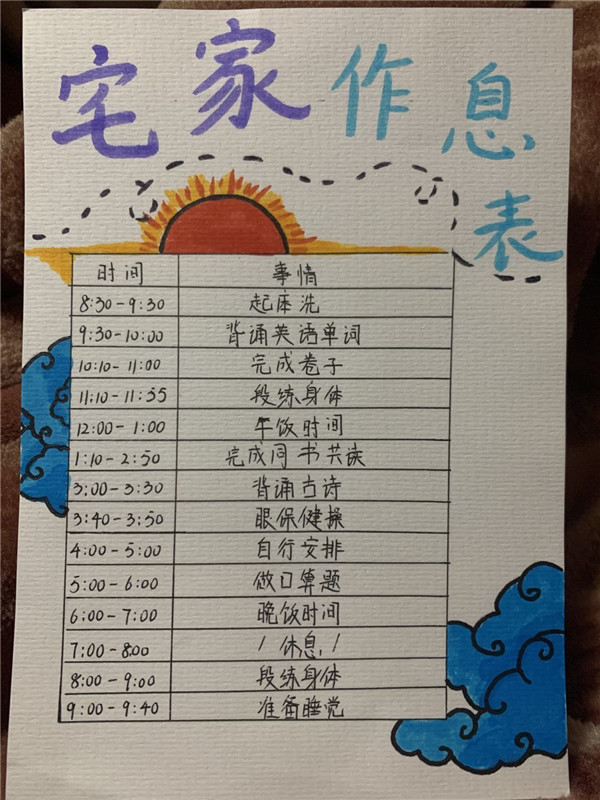 宅家作息表
时间 事情
8:30-9:30 起床洗
9:30-10:00 背诵英语单词
10:10-11:00 完成卷子
11:10-11:55 段练身体
12:00-1:00 午饭时间
1:10-2:50 完成同书共读
3:00-3:30 背诵古诗
3:40-3:50 眼保健操
4:00-5:00 自行安排
5:00-6:00 做口算题
6:00-7:00 晚饭时间
7:00-8:00 / 休息 /
8:00-9:00 段练身体
9:00-9:40 准备睡觉